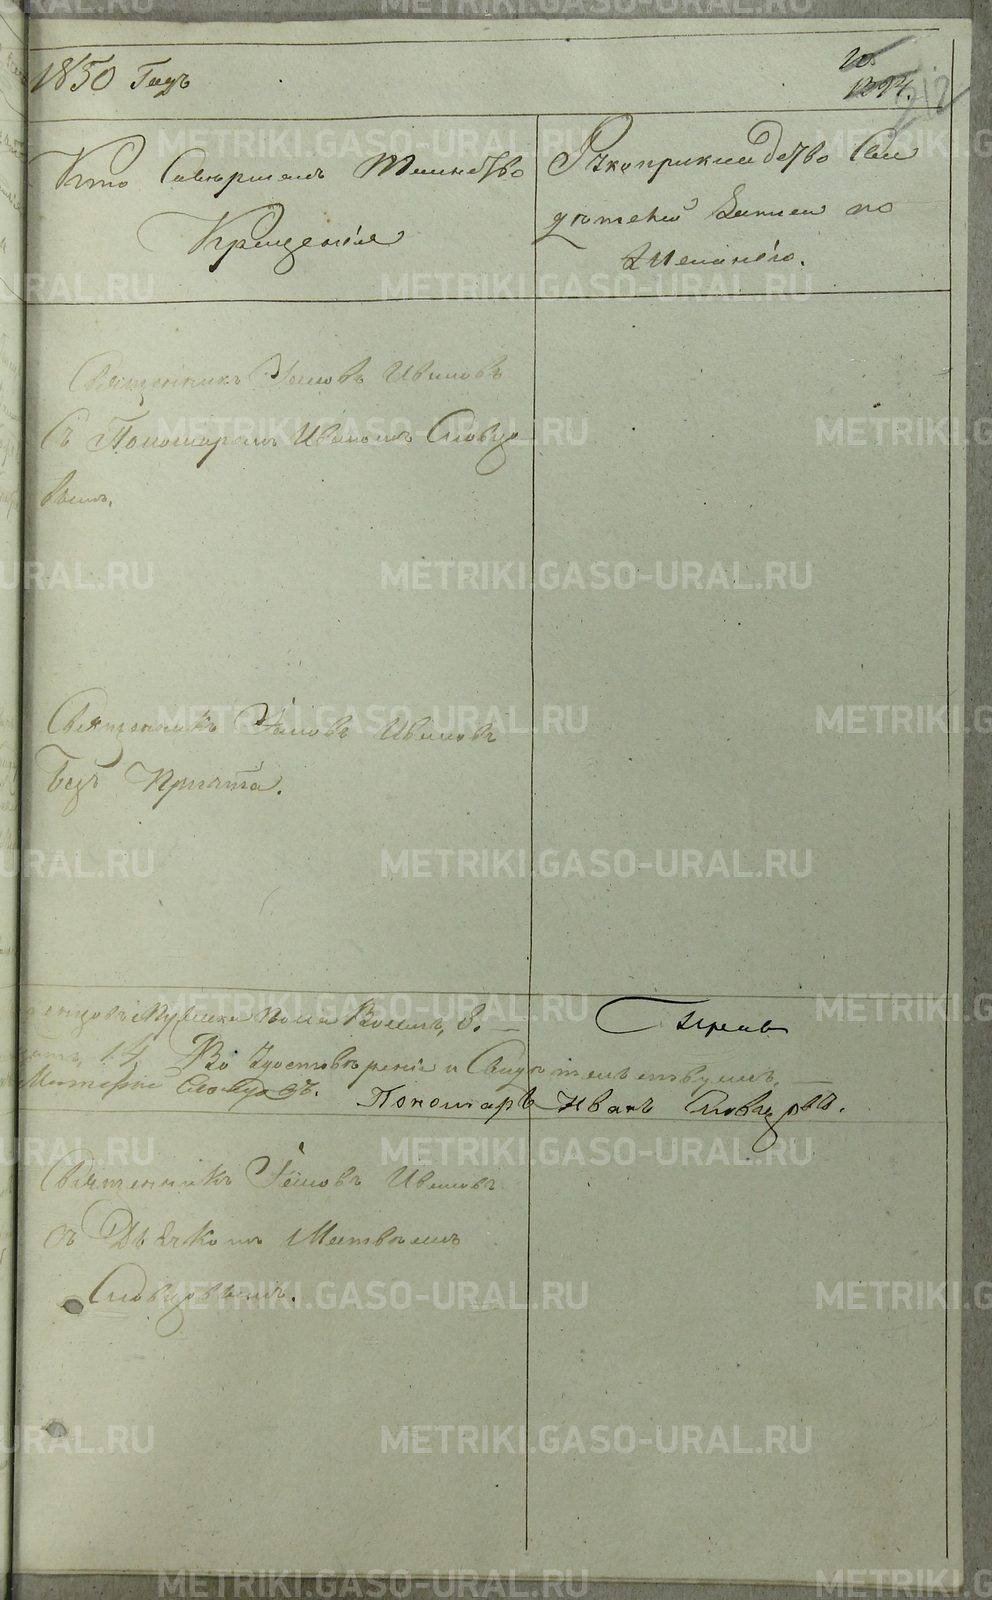 1850 Годъ
10
1394.
212
Кто Совершалъ Таинство
Крещенія
Рукоприкладство Сви
дѣтелей Записи по
желанію.
Священникъ Іаковъ Ивановъ
Съ Пономаремъ Иваномъ Словцо
вымъ.
Священникъ Іаковъ Ивановъ
Безъ Причта.
Мужеска пола Восемь, 8. —
14, Во Удостовѣреніе и Свидѣтельствуемъ
Пономарь Иванъ Словцовъ.
Священникъ Іаковъ Ивановъ
съ Дьячкомъ Матвѣемъ
Словцовымъ.
METRIKI.GASO-URAL.RU